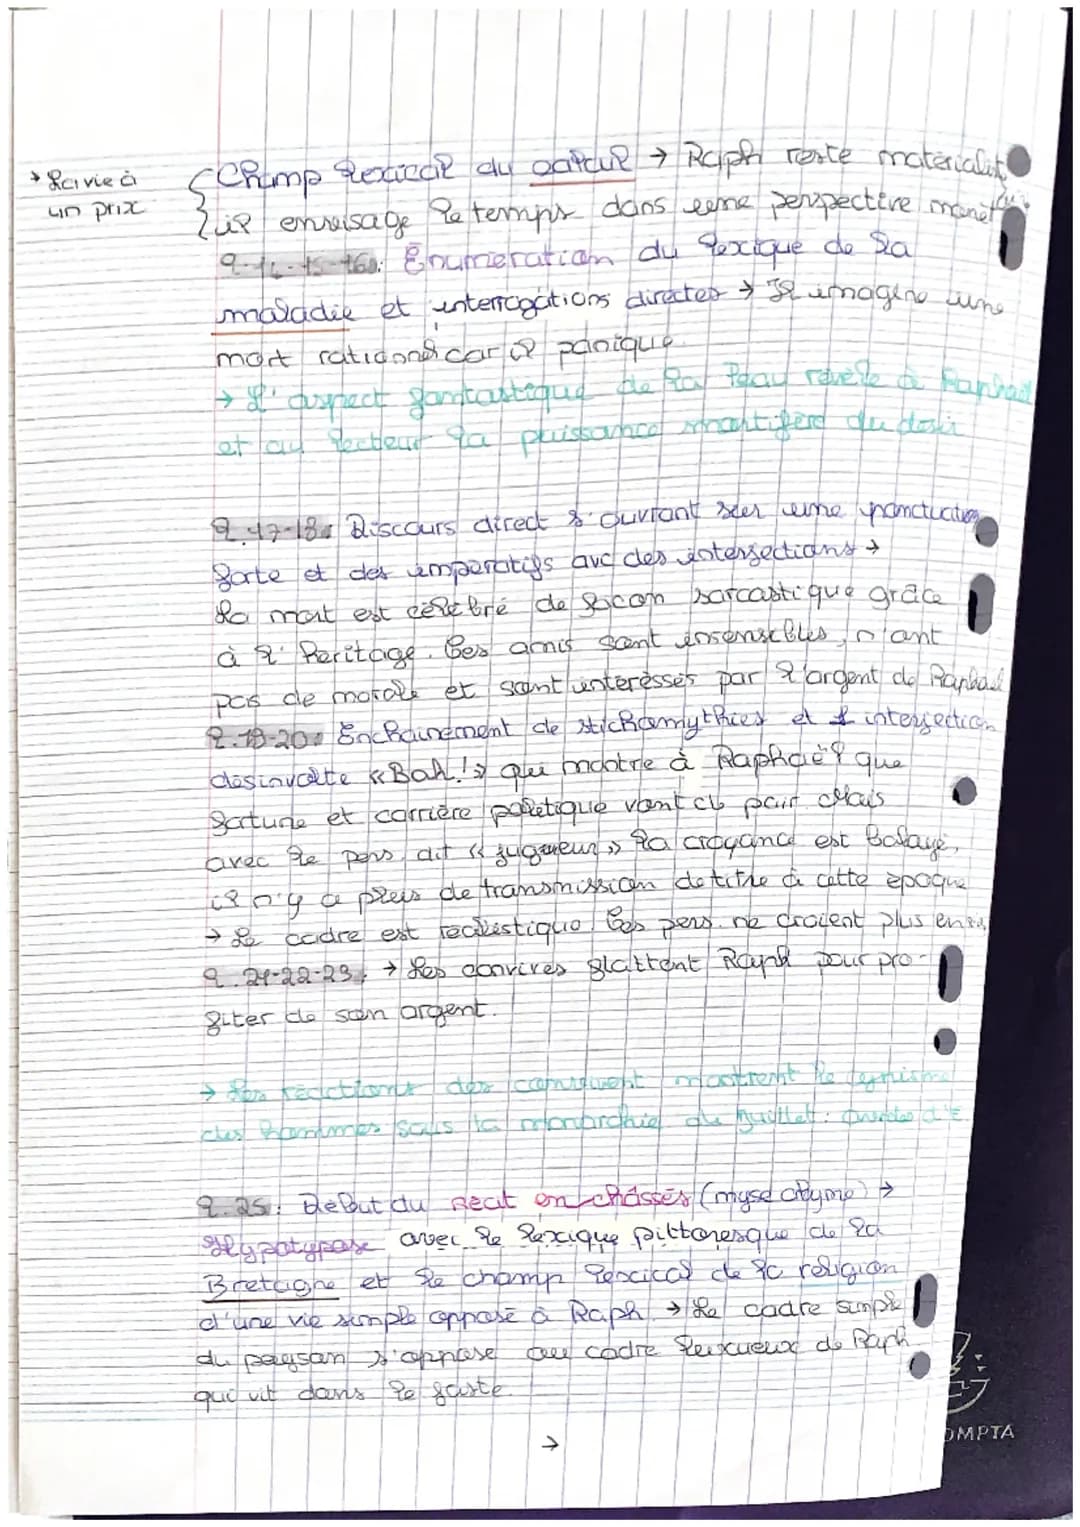 → La vie à
un prix
Champ lexical du calcul → Raph reste matérialiste
il envisage le temps dans une perspective
l.14-15-16: Énumération du lexique de la
maladie et interrogations directes → Il imagine une
mort rationnel car il panique.
→ L'aspect fantastique de la Peau révèle à Raphaël
et au lecteur la puissance mortifère du désir
l.17-18: Discours direct s'ouvrant sur une ponctuation
forte et des imperatifs avc des intersections →
La mort est célébré de facon sarcastique grâce
à l'héritage. Ces amis sont insensibles, n'ont
pas de morale et sont interessés par l'argent de Raphael
l.19-20: Enchainement de stichomythies et intersection
désinvolte «Bah!» qui montre à Raphaël que
fortune et carrière politique vont de pair. Mais
avec le pers dit «jugeur» la croyance est balayé,
il n'y a plus de transmission de titre à cette époque
→ Le cadre est réalistique les pers. ne croient plus en
l.21-22-23: → Les convives flattent Raph pour pro-
fiter de son argent.
→ Les réactions des montrent le cynisme
des hommes sous la monarchie de Juillet:
l.25: Début du récit en chassés →
Hypotypose avec le lexique pittoresque de la
Bretagne et le champ lexical de la religion
d'une vie simple opposé à Raph. → Le cadre simple
du paysan s'oppose au cadre luxueux de Raph
qui vit dans le faste.
→
OMPTA